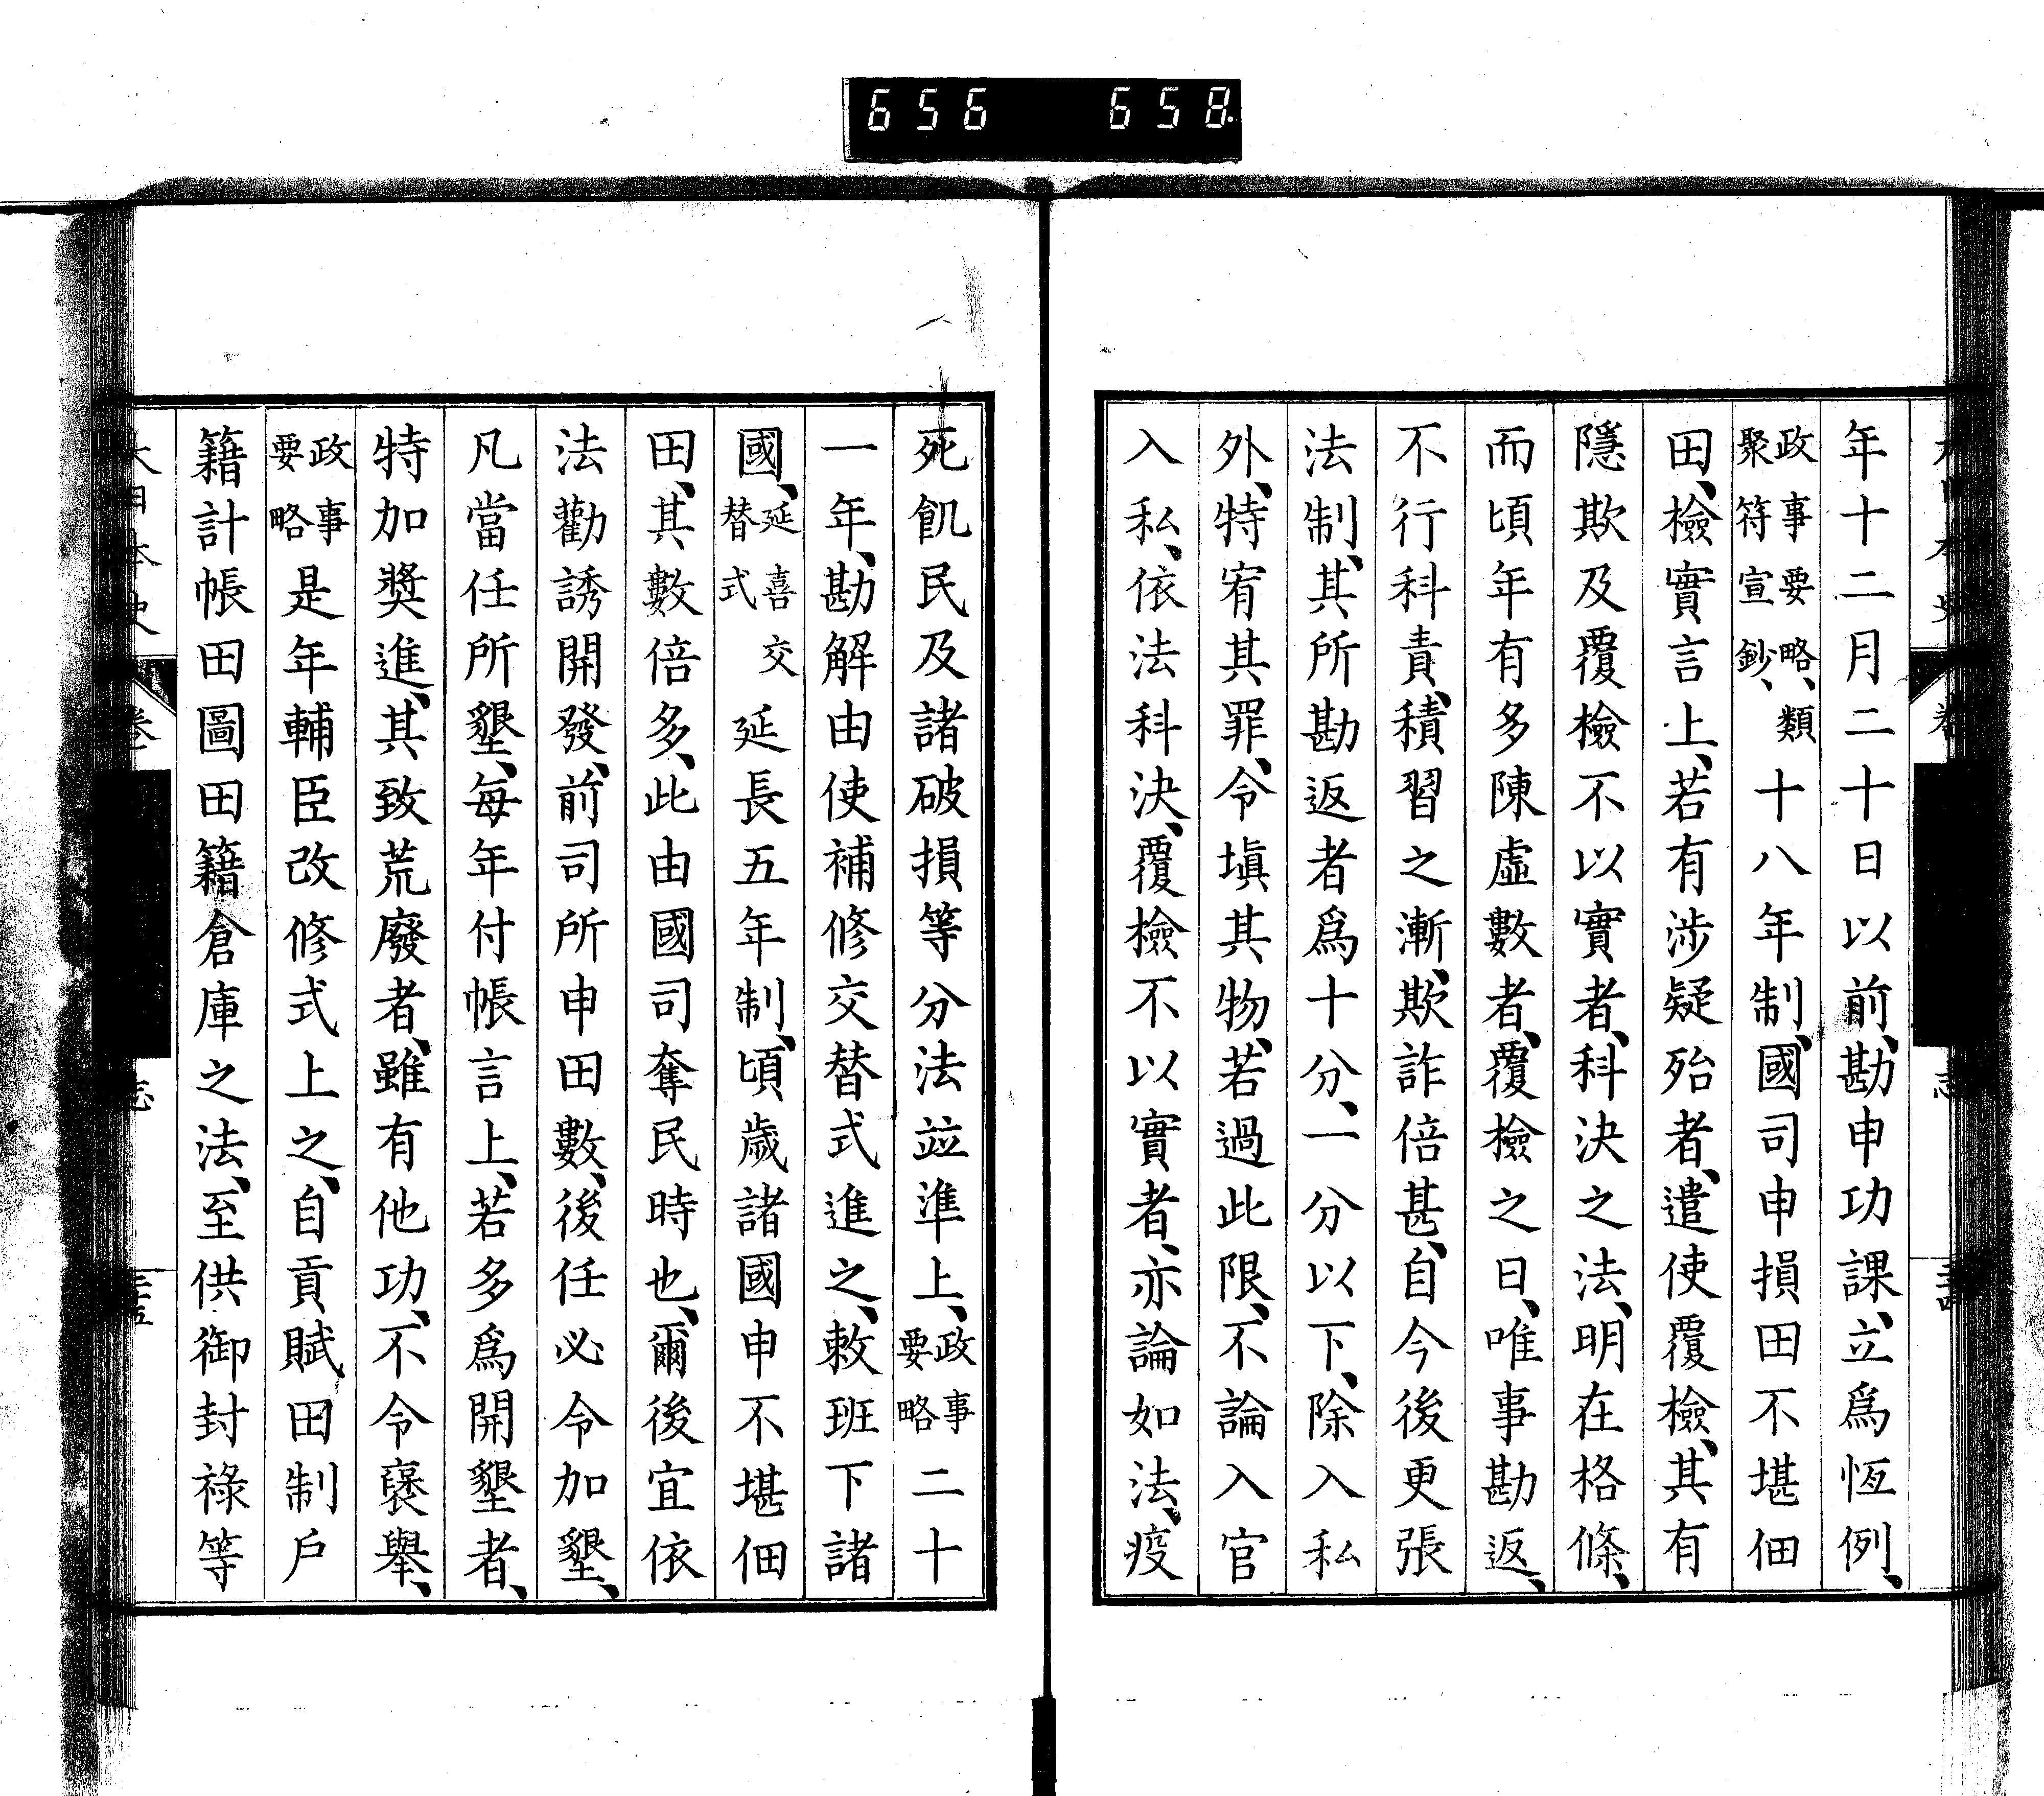 656 658
年十二月二十日以前、勘申功課、立爲恆例、
政事要略、類聚符宣鈔、十八年制、國司申損田不堪佃
田、檢實言上、若有涉疑殆者、遣使覆檢、其有
隱欺及覆檢不以實者、科決之法、明在格條、
而頃年有多陳虛數者、覆檢之日、唯事勘返、
不行科責、積習之漸、欺詐倍甚、自今後更張
法制、其所勘返者爲十分、一分以下、除入私
外、特宥其罪、令塡其物、若過此限、不論入官
入私、依法科決、覆檢不以實者、亦論如法、疫
死飢民及諸破損等分法竝準上、政事要略二十
一年、勘解由使補修交替式進之、敕班下諸
國、延喜交替式延長五年制、頃歲諸國申不堪佃
田、其數倍多、此由國司奪民時也、爾後宜依
法勸誘開發、前司所申田數、後任必令加墾、
凡當任所墾、每年付帳言上、若多爲開墾者、
特加奬進、其致荒廢者、雖有他功、不令襃擧、
政事要略是年輔臣改修式上之、自貢賦田制戶
籍計帳田圖田籍倉庫之法、至供御封祿等